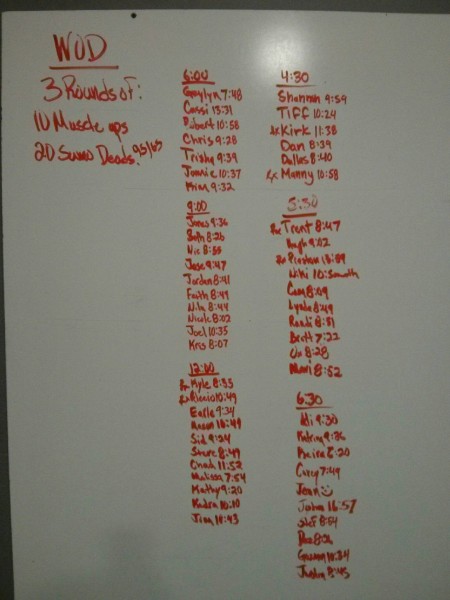 WOD
3 Rounds of:
10 Muscle ups
20 Sumo Deads. 95/65
6:00
Gaylyn 7:48
Cassi 13:31
Robert 10:58
Chris 9:28
Trishy 9:39
Jamie 10:37
Kim 9:32
9:00
James 9:36
Beth 8:26
Nic 8:55
Jose 9:47
Jordan 8:41
Faith 8:49
Nita 8:44
Nicole 8:02
Joel 10:35
Kris 8:07
12:00
Rx Kyle 8:55
Rx 10:49
Earle 9:34
10:49
Sid 9:24
Steve 8:49
Chad 11:52
Malissa 7:54
Kathy 9:20
Kadra 10:10
Jim 10:43
4:30
Shannon 9:59
TIFF 10:24
Rx Kirk 11:38
Dan 8:39
Dallas 8:40
Rx Manny 10:58
5:30
Rx Trent 8:47
Hugh 9:02
Rx
Niki 10:Somethn
Cam 8:09
Lynde 8:49
Randi 8:51
Brett 7:22
8:28
Mari 8:52
6:30
Ali 9:30
Katrina 9:26
8:20
Corey 7:49
Jean
John 16:57
Stef 8:54
8:26
10:34
Justin 8:45